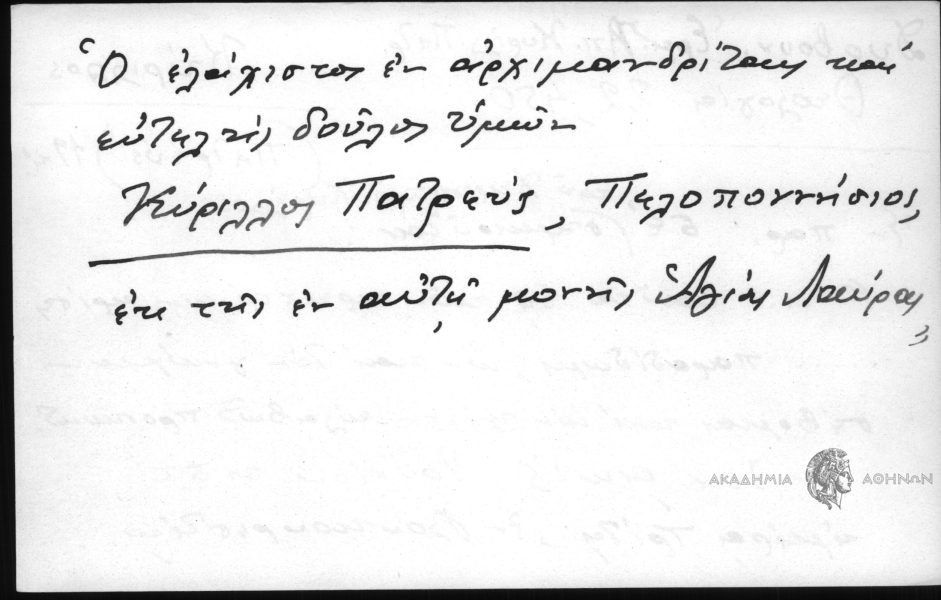 Ὁ ἐλάχιστος ἐν ἀρχιμανδρίταις καὶ
εὐτελὴς δοῦλος ὑμῶν
Κύριλλος Πατρεύς, Πελοποννήσιος,
ἐκ τῆς ἐν αὐτῇ μονῆς Ἁγίας Λαύρας
ΑΚΑΔΗΜΙΑ ΑΘΗΝΩΝ